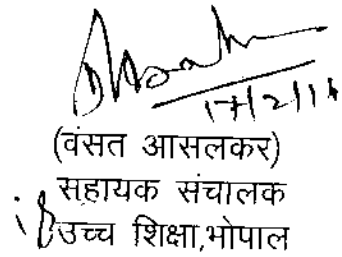 17/2/11
(वंसत आसलकर)
सहायक संचालक
उच्च शिक्षा,भोपाल